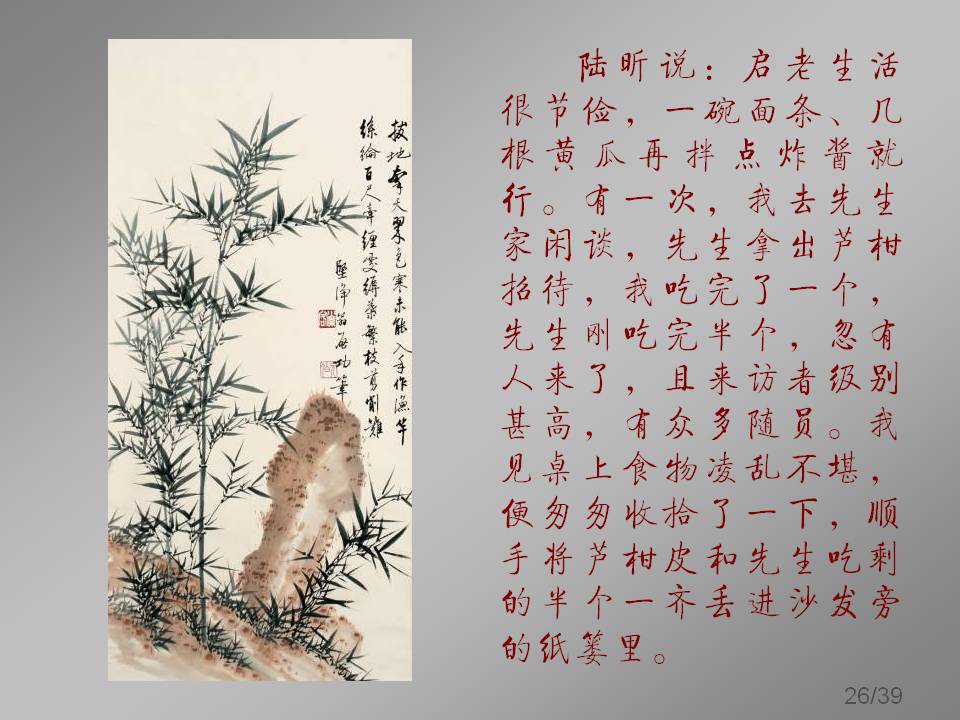 拔地拏天翠色寒未能入手作渔竿
丝纶百尺牵缠处
坚净翁启功笔
陆昕说：启老生活
很节俭，一碗面条、几
根黄瓜再拌点炸酱就
行。有一次，我去先生
家闲谈，先生拿出芦柑
招待，我吃完了一个，
先生刚吃完半个，忽有
人来了，且来访者级别
甚高，有众多随员。我
见桌上食物凌乱不堪，
便匆匆收拾了一下，顺
手将芦柑皮和先生吃剩
的半个一齐丢进沙发旁
的纸篓里。
26/39